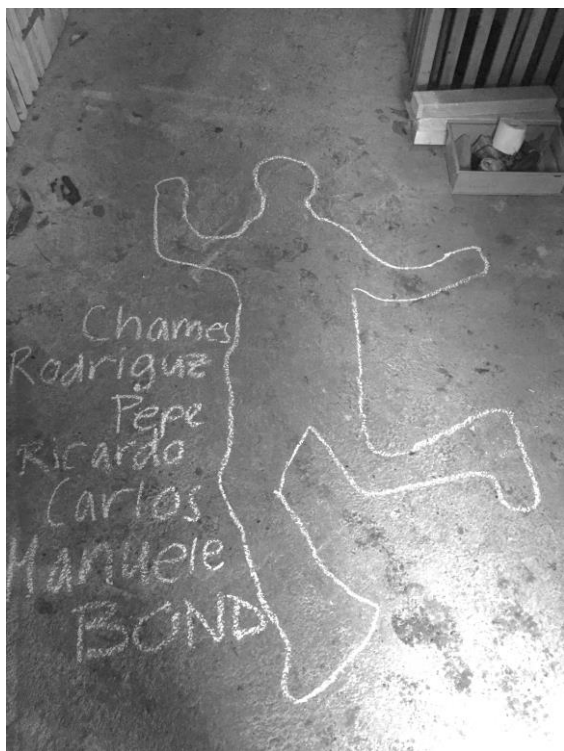 Chames
Rodriguz
Pepe
Ricardo
Carlos
Manuele
BOND